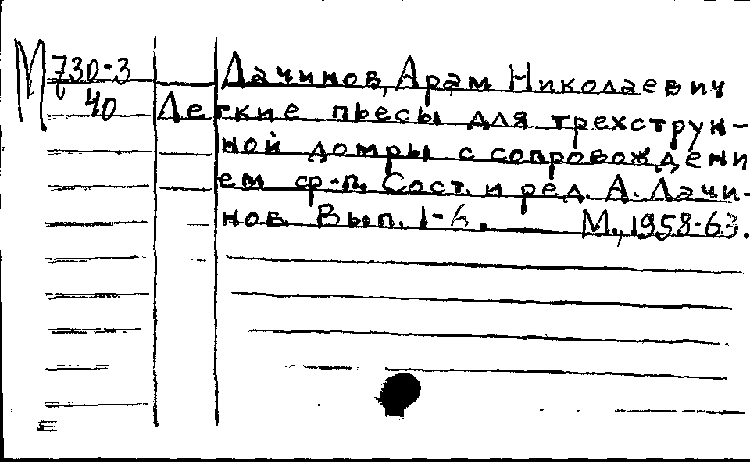 М 730-3 Лачинов, Арам Николаевич
40 Легкие пьесы для трехструн-
ной домры с сопровождени
ем ф-п. Сост. и ред. А. Лачи-
нов. Вып. 1-6. — М., 1958-63.